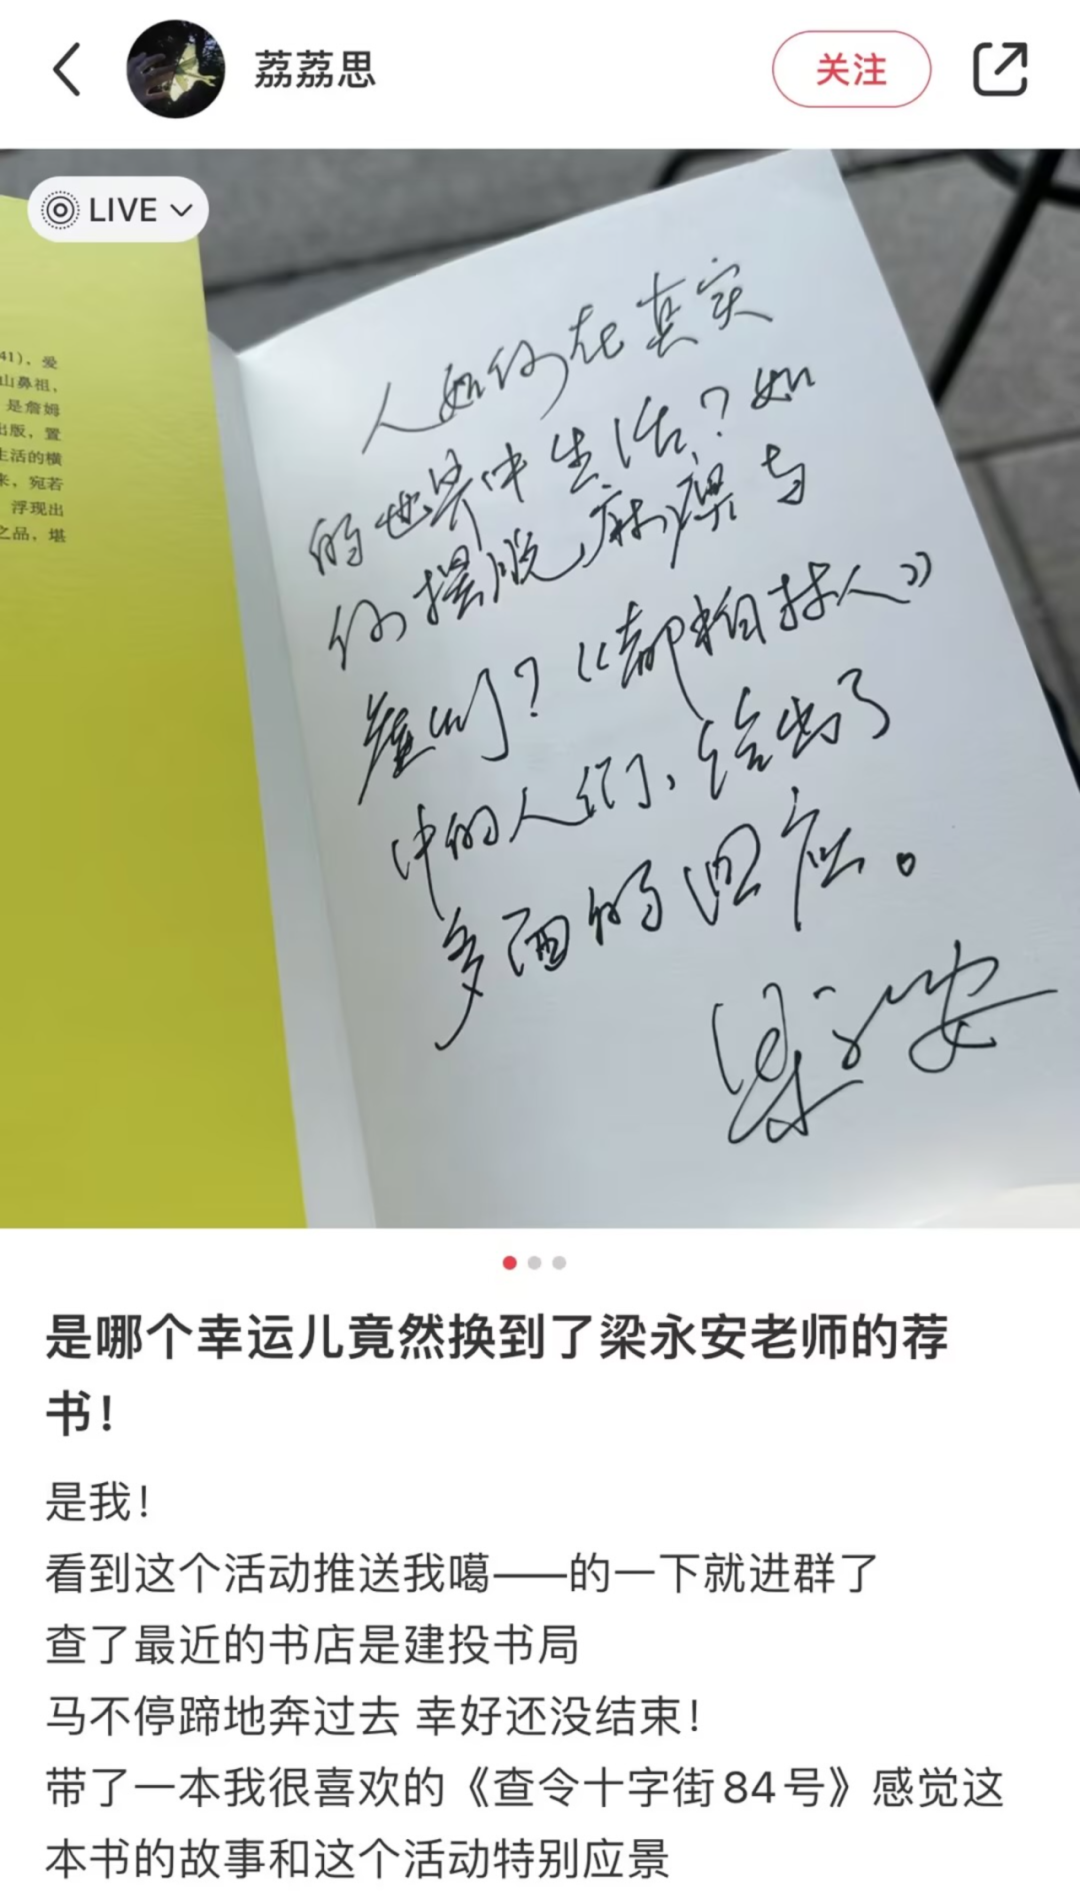 荔荔思
关注
LIVE
41)，爱
山鼻祖，
是詹姆
出版，置
生活的横
来，宛若
浮现出
之品，堪
人如何在真实
的世界中生活？如
何摆脱麻痹与
庸俗？《都柏林人》
中的人们，给出了
多面的回应。
梁永安
是哪个幸运儿竟然换到了梁永安老师的荐
书！
是我！
看到这个活动推送我噶——的一下就进群了
查了最近的书店是建投书局
马不停蹄地奔过去 幸好还没结束！
带了一本我很喜欢的《查令十字街84号》感觉这
本书的故事和这个活动特别应景